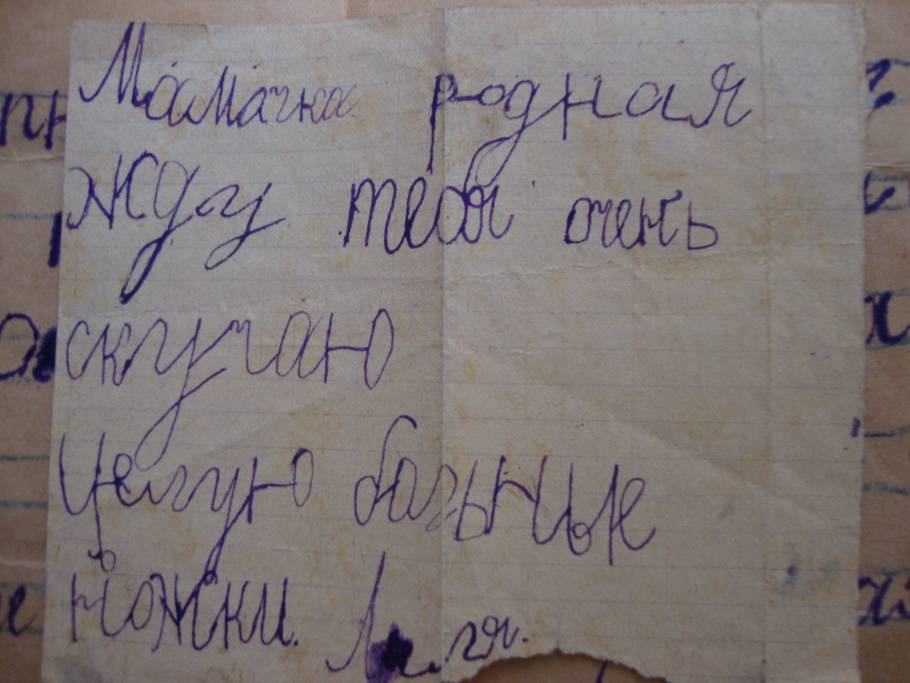 Мамачка родная
Жду тебя очень
скучаю
Целую больные
ножки. Лиля.